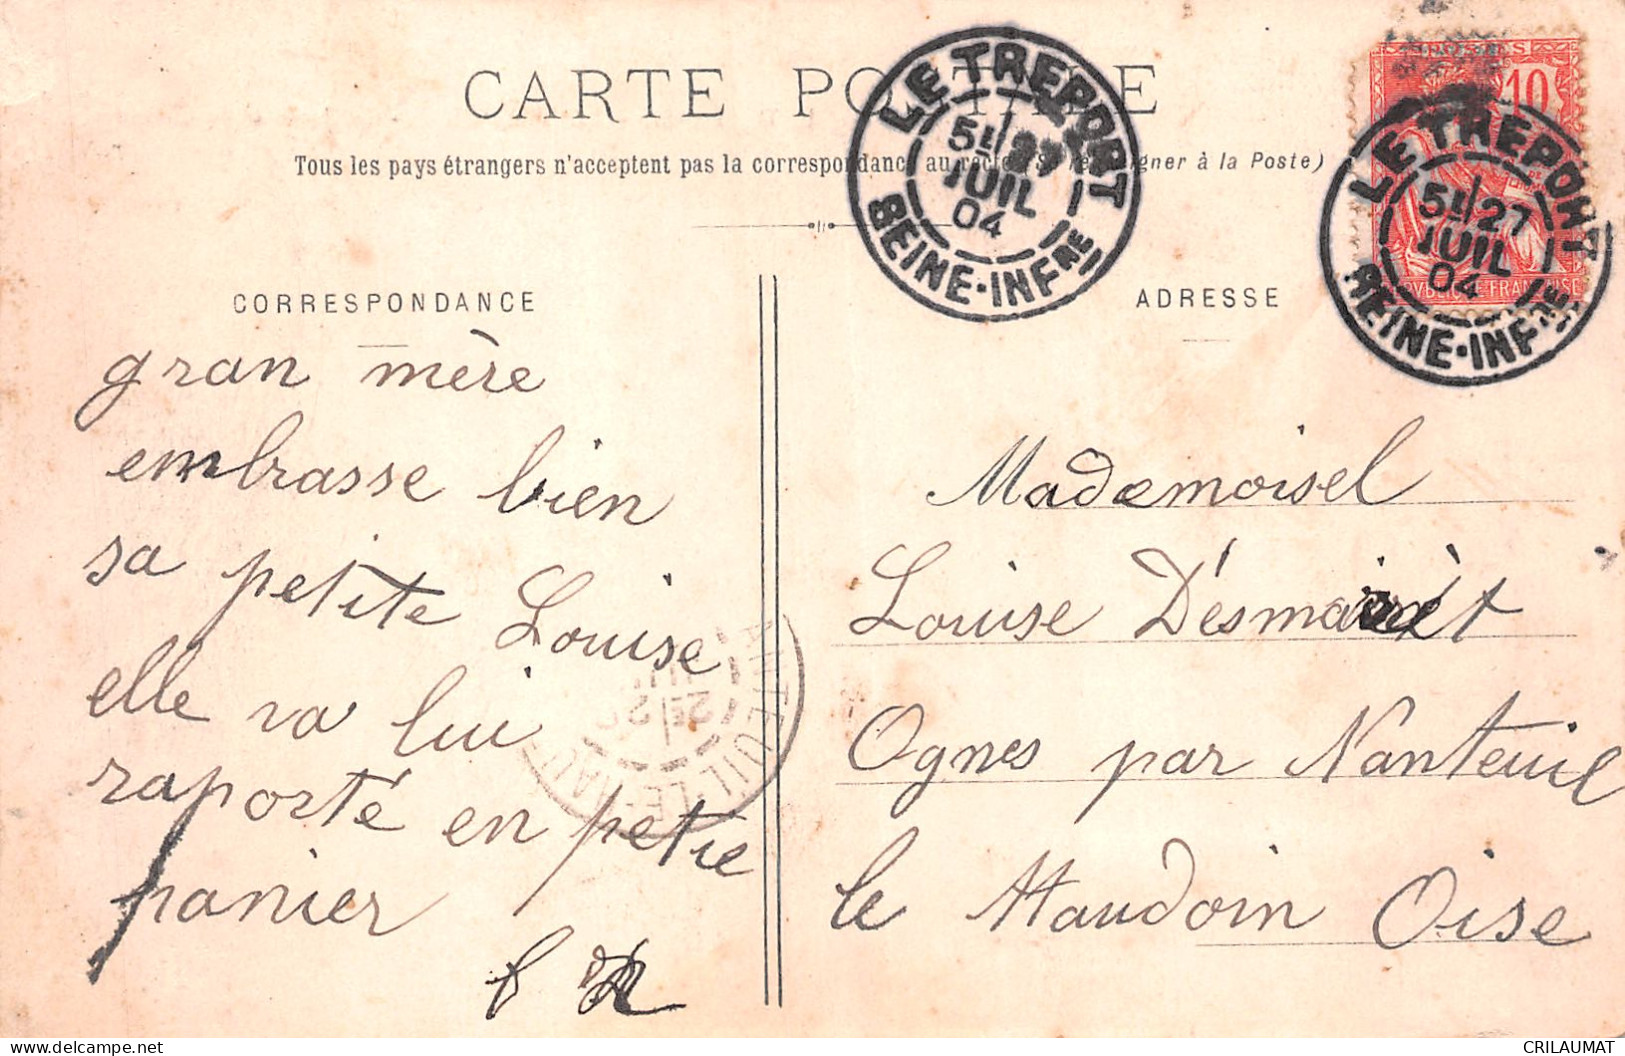 CARTE POSTALE
Tous les pays étrangers n'acceptent pas la correspondance au recto (Se renseigner à la Poste)
LE TREPORT
5E 27
JUIL
04
SEINE-INFRE
10
LE TREPORT
5E 27
JUIL
04
SEINE-INFRE
REPUBLIQUE FRANÇAISE
CORRESPONDANCE
gran mère
embrasse bien
sa petite Louise
elle va lui
raporté en petie
panier
ADRESSE
Mademoisel
Louise
Ognes par Nanteuil
le Haudoin Oise
NANTEUIL-LE-HAUDOUIN
CRILAUMAT